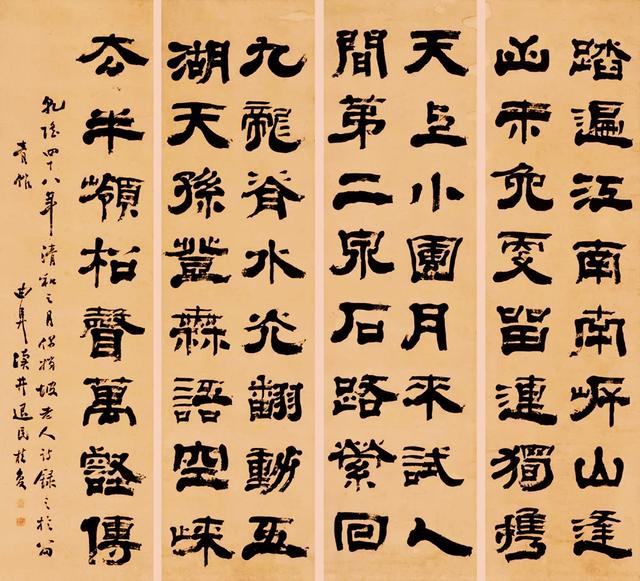 踏遍江南南岸山逢
山未免更留連獨攜
天上小團月來試人
間第二泉石路縈回
九龍脊水光翻動五
湖天孫登無語空歸
去半嶺松聲萬壑傳
乾隆四十八年清和之月偶坡老人詩錄之於
曲阜瀆井退民桂馥